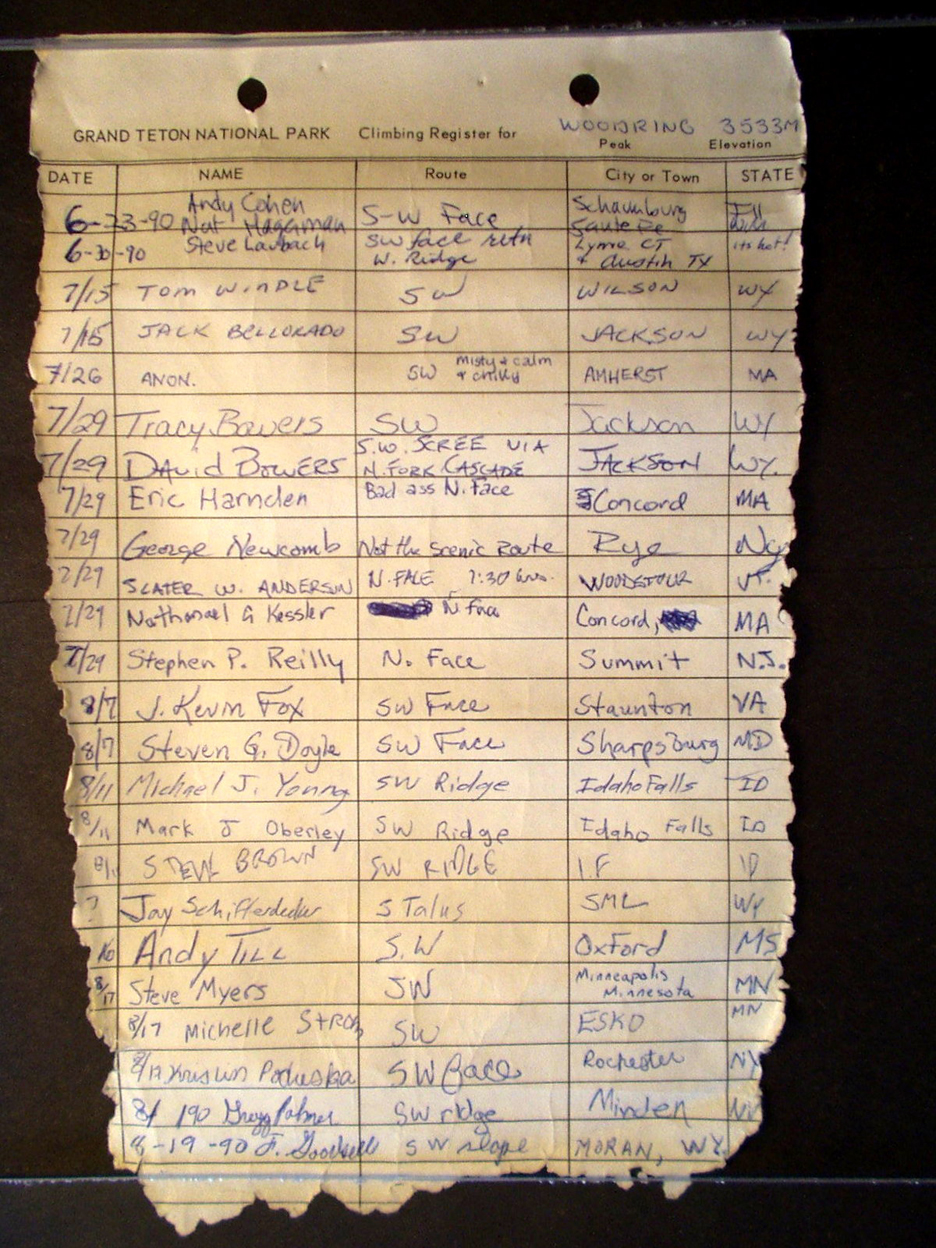 WOODRING 3533M
GRAND TETON NATIONAL PARK Climbing Register for Peak Elevation
DATE NAME Route City or Town STATE
6-23-90 Andy Cohen S-W Face Schaumburg Ill
Nat Santa Fe
6-30-90 Steve Laubach SW face retn Lyme CT its hot!
W. Ridge + Austin TX
7/15 TOM WINDLE SW WILSON WY
7/15 JACK BELLORADO SW JACKSON WY
7/26 ANON. SW Misty & calm & chilly AMHERST MA
7/29 Tracy Bowers SW Jackson WY
7/29 DAVID BOWERS S.W. SCREE VIA N. FORK CASCADE JACKSON WY.
7/29 Eric Harnden Bad ass N. Face Concord MA
7/29 George Newcomb Not the Scenic Route Rye Ny
7/29 SLATER W. ANDERSON N. FACE 1:30 hrs. WOODSTOCK VT.
7/29 Nathanael G Kessler N face Concord, MA
7/29 Stephen P. Reilly N. Face Summit N.J.
8/7 J. Kevin Fox SW Face Staunton VA
8/7 Steven G. Doyle SW Face Sharpsburg MD
8/11 Michael J. Young SW Ridge Idaho Falls ID
8/11 Mark J Oberley SW Ridge Idaho Falls ID
8/1 STEVE BROWN SW RIDGE I.F ID
? Jay Schifferdecker S Talus SML WY
16 Andy TILL S.W Oxford MS
8/17 Steve Myers SW Minneapolis Minnesota MN
8/17 Michelle STROM SW ESKO MN
8/17 Kristin Poduska SW face Rochester NY
8/ 190 Gregg Palmer SW ridge Minden NV
8-19-90 F. Goodsell SW slope MORAN, WY.